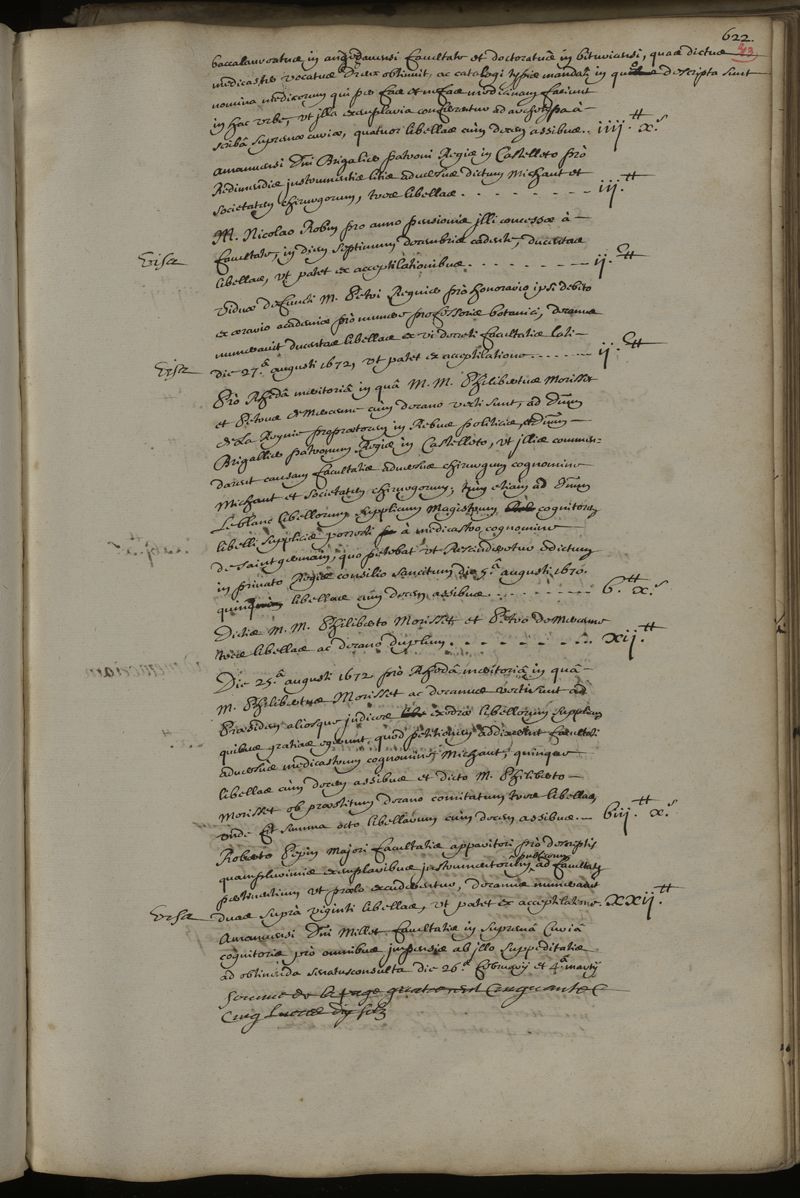 622.
43
baccalaureatus in andegavensi facultate et doctoratus in bituricensi, quae dictus
medicaster vocatus Dreux obtinuit, ac catalogi typis mandati in quo descripta sunt
nomina medicorum qui per fas et nefas medicinam faciunt
in hac urbe, ut illa exemplaria conferrentur ad authographa à
scribâ supremae curiae, quatuor libellae cum decem assibus.. iiij.tt x.s
Amanuensi Dni Brigalier patroni Regis in Castelleto pro
Redimendis instrumentis litis adversus dictum Michaut et
societatem chirurgorum, tres libellae . . . . . . . . iij.tt
M. Nicolao Robin pro anno pensionis illi concessae à
Visa
facultate, in diem septimum decembris cadente, ducentae
libellae, ut patet ex acceptilationibus . . . . . . . . ij.C tt
Viduae defuncti M. Petri Regnier pro honorario ipsi debito
ex aerario academiae pro munere professoris botanici, decanus
numeravit ducentas libellas ex vi decreti facultatis lati
Visa
die 27.a augusti 1672, ut patet ex acceptilatione . . . . . . ij.C tt
Pro Rhedâ meritoriâ in quâ M. M. Philibertus Morisset
et Petrus de Mercenne cum decano vecti sunt, ad Dnum
de La Reynie propraetorem in Rebus politicis, et Dnum
Brigallier patronum Regis in Castelleto, ut illis commen=
darent causam facultatis adversus chirurgum cognomine
Michaut et societatem chirurgorum; tum etiam ad Dnum
Le blanc libellorum supplicum Magistrum cognitorem
libelli supplicis porrecti à medicastro cognomine
de Saint germain, quo petebat ut Rescinderetur edictum
in privato Regis consilio sancitum die 5.a augusti 1670.
quinque libellae cum decem assibus . . . . . . . . . 6.tt x.s
Dictis M. M. Philiberto Morisset et Petro De Mercenne
tres libellae ac decano duplum . . . . . . . . xij.tt
Die 25.a augusti 1672 pro Rhedâ meritoriâ in quâ
M. Philibertus Morisset ac decanus vecti sunt ad
Praesidem aliosque judices exedrae libellorum supplicum
quibus gratias egerunt, quod petitionem addixerint facultati
adversus medicastrum cognominem Michaut, quinque
libellae cum decem assibus et dicto M. Philiberto
Morisset ob praestitum decano comitatum tres libellae
unde fit summa octo libellarum cum decem assibus... biij.tt x.s
Roberto Pepin majori facultatis apparitori pro descriptis
quamplurimis exemplaribus instrumentorum publicorum ad facultatem
pertinentium ut praelo excuderentur, decanus numeravit
Visa
duas supra viginti libellas, ut patet ex acceptilatione. xxij.tt
Amanuensi Dni Millet facultatis in supremâ Curiâ
cognitoris pro omnibus impensis ab illo suppeditatis
ad obtinenda senatusconsulta die 26.a februarij et 4.a martij
Somme de la page quatre cent cinquante
Cinq livres dix solz